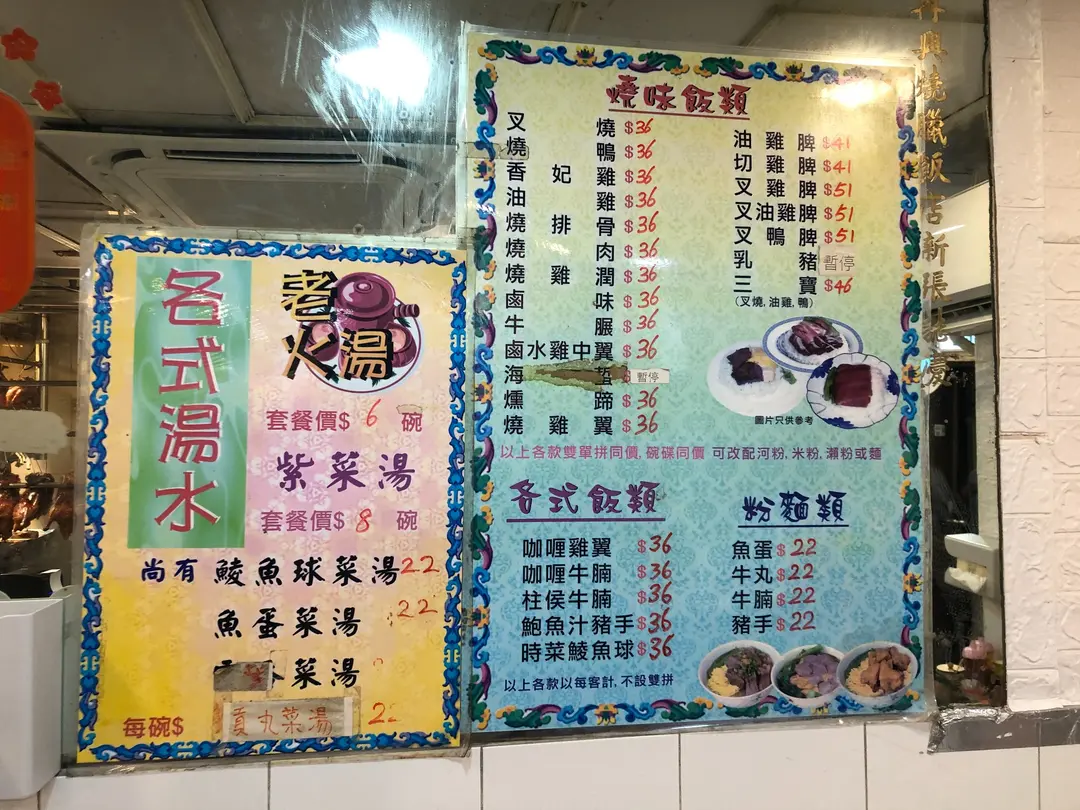 各式湯水
老火湯
套餐價$ 6 碗
紫菜湯
套餐價$ 8 碗
尚有 鯪魚球菜湯 22
魚蛋菜湯 22
菜湯
每碗$ 貢丸菜湯 22
燒味飯類
叉燒 $36
燒鴨 $36
香妃雞 $36
油雞 $36
燒排骨 $36
燒肉 $36
燒雞潤 $36
鹵味 $36
牛𦟌 $36
鹵水雞中翼 $36
海蜇 暫停
燻蹄 $36
燒雞翼 $36
油雞脾 $41
切雞脾 $41
叉雞脾 $51
叉油雞脾 $51
叉鴨脾 $51
乳豬 暫停
三寶 $46
(叉燒, 油雞, 鴨)
圖片只供參考
以上各款雙單拼同價, 碗碟同價 可改配河粉, 米粉, 瀨粉或麵
各式飯類
咖喱雞翼 $36
咖喱牛腩 $36
柱侯牛腩 $36
鮑魚汁豬手 $36
時菜鯪魚球 $36
以上各款以每客計, 不設雙拼
粉麵類
魚蛋 $22
牛丸 $22
牛腩 $22
豬手 $22
興燒臘飯店新張